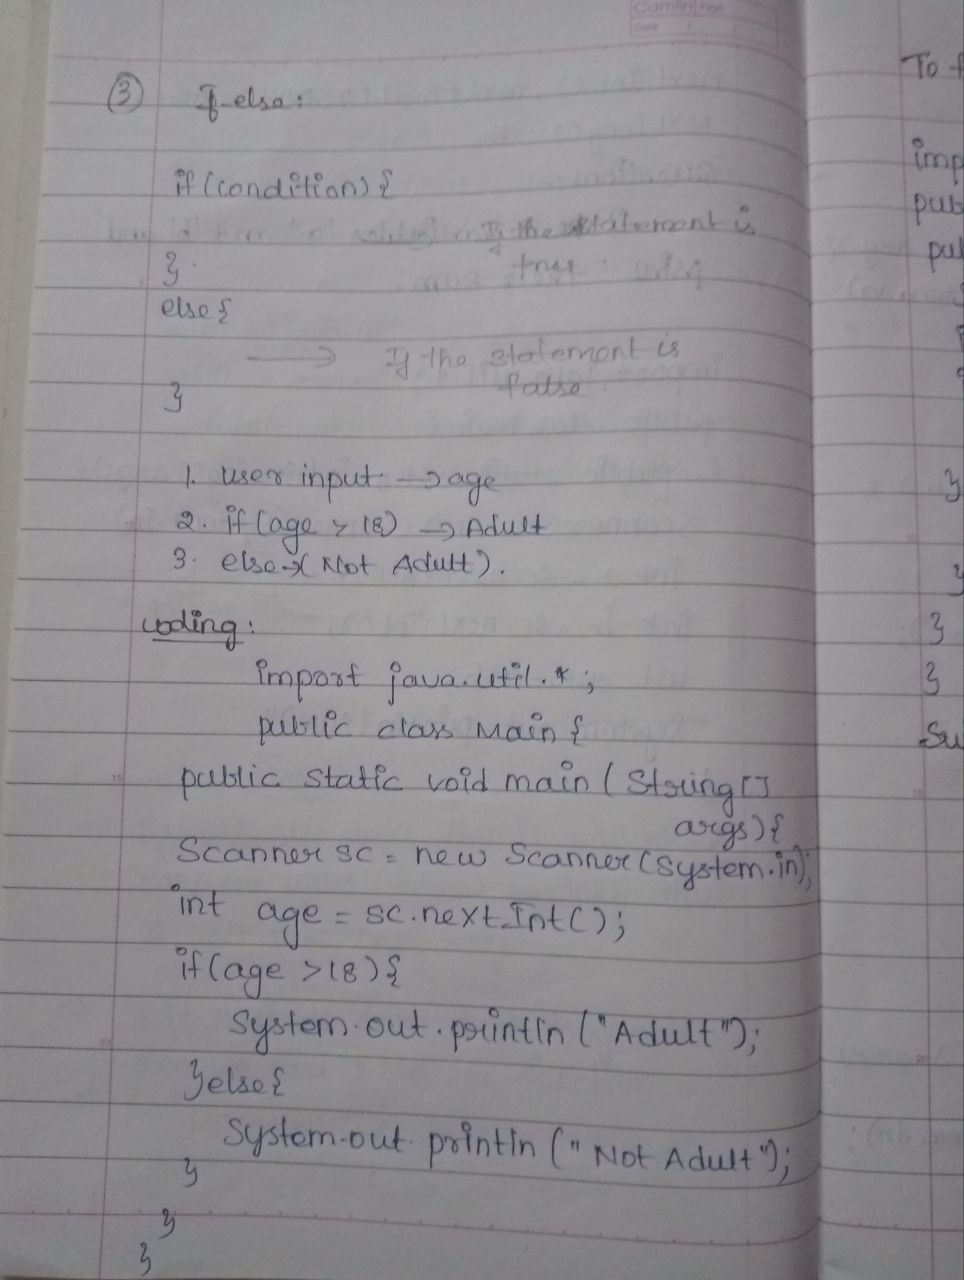 Camlin Page
Date
③ If-else:
if (condition) {
If the statement is
true
}
else {
→ If the statement is
false
}
1. user input → age
2. if (age > 18) → Adult
3. else → (Not Adult).
coding:
import java.util.*;
public class Main {
public static void main (String[]
args) {
Scanner sc = new Scanner (System.in);
int age = sc.nextInt();
if (age > 18) {
System.out.println ("Adult");
} else {
System.out.println ("Not Adult");
}
}
}
To
imp
pub
pu
}
}
}
}
Su